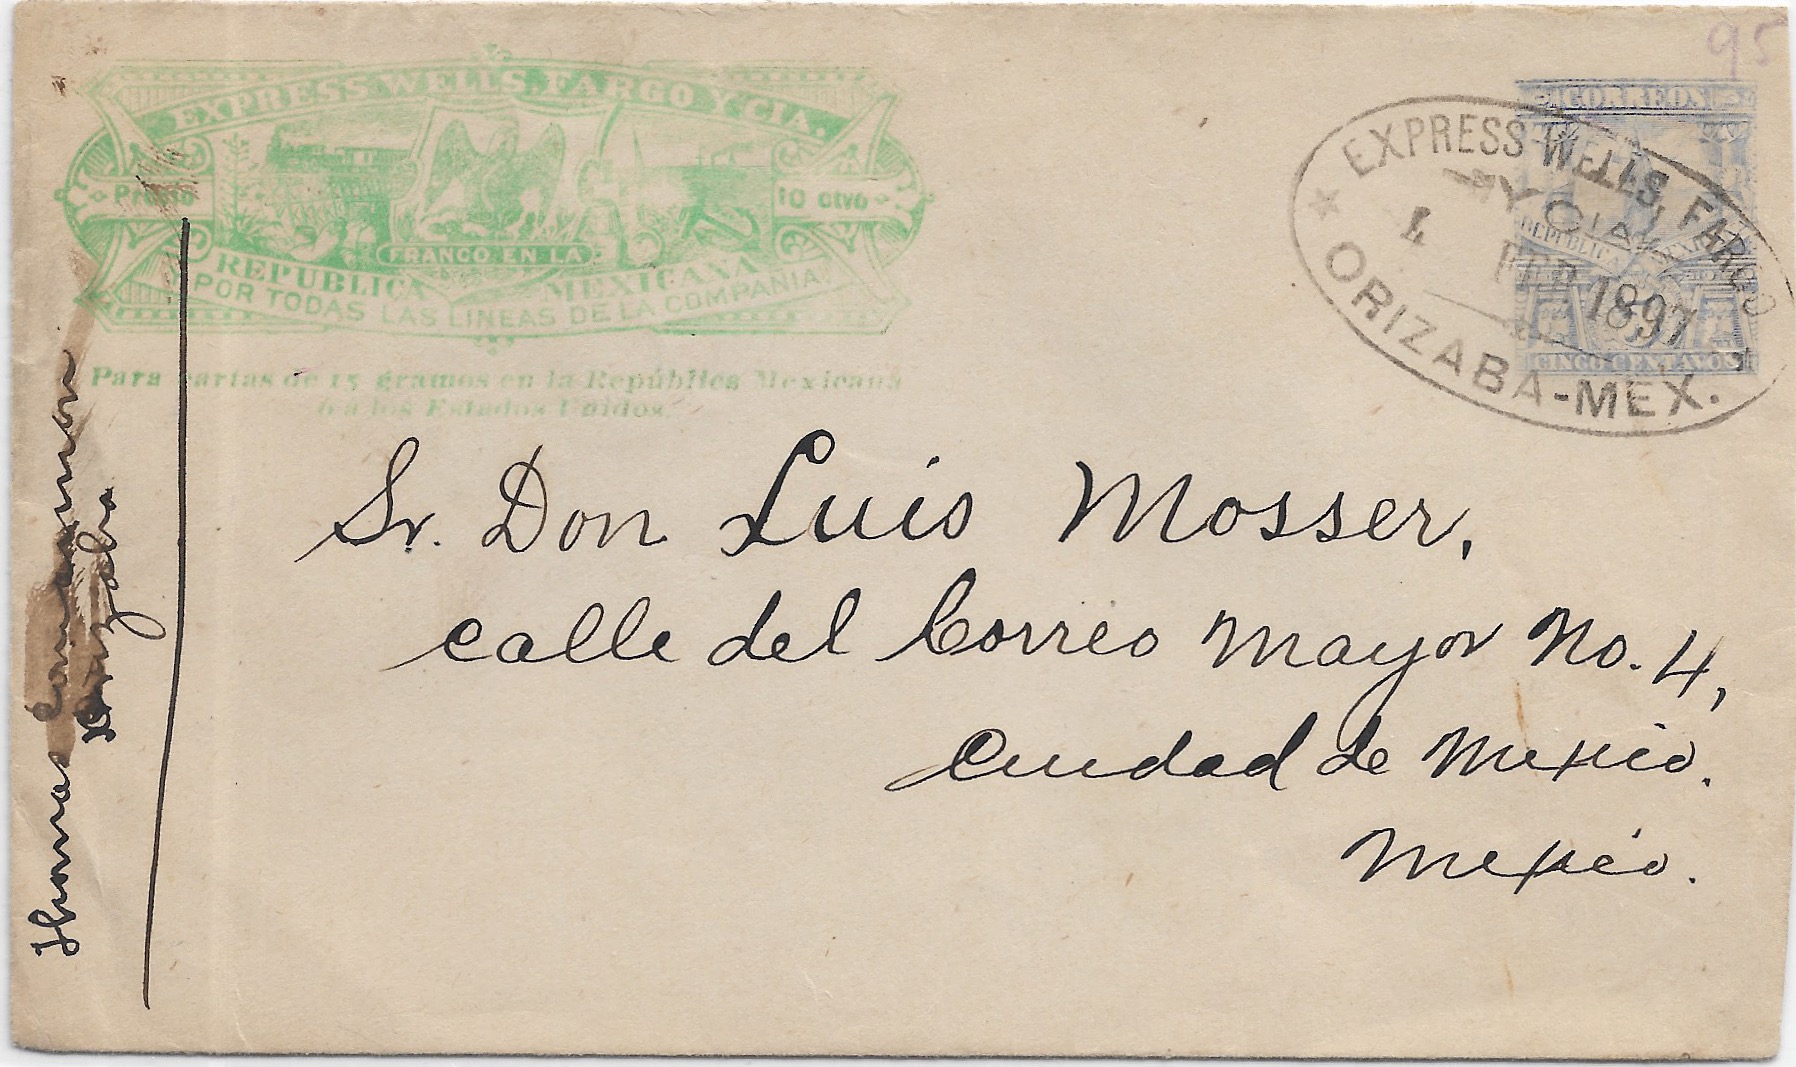 95
EXPRESS WELLS, FARGO Y CIA.
Precio
10 ctvo
FRANCO EN LA
REPUBLICA MEXICANA
POR TODAS LAS LINEAS DE LA COMPAÑIA.
Para cartas de 15 gramos en la República Mexicana
ó a los Estados Unidos.
CORREOS
REPUBLICA MEXICANA
CINCO CENTAVOS
EXPRESS WELLS, FARGO
Y CIA
FEB 1897
ORIZABA-MEX.
Sr. Don Luis Mosser,
calle del Correo Mayor No. 4,
Ciudad de Mexico.
Mexico.
Thomas
Orizaba